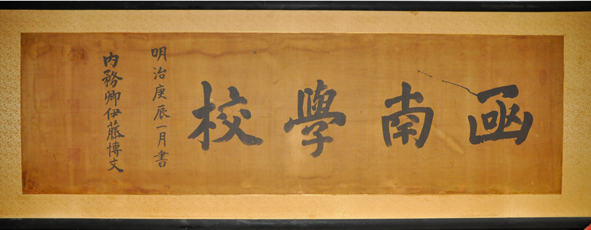 函南學校
明治庚辰一月書
内務卿伊藤博文